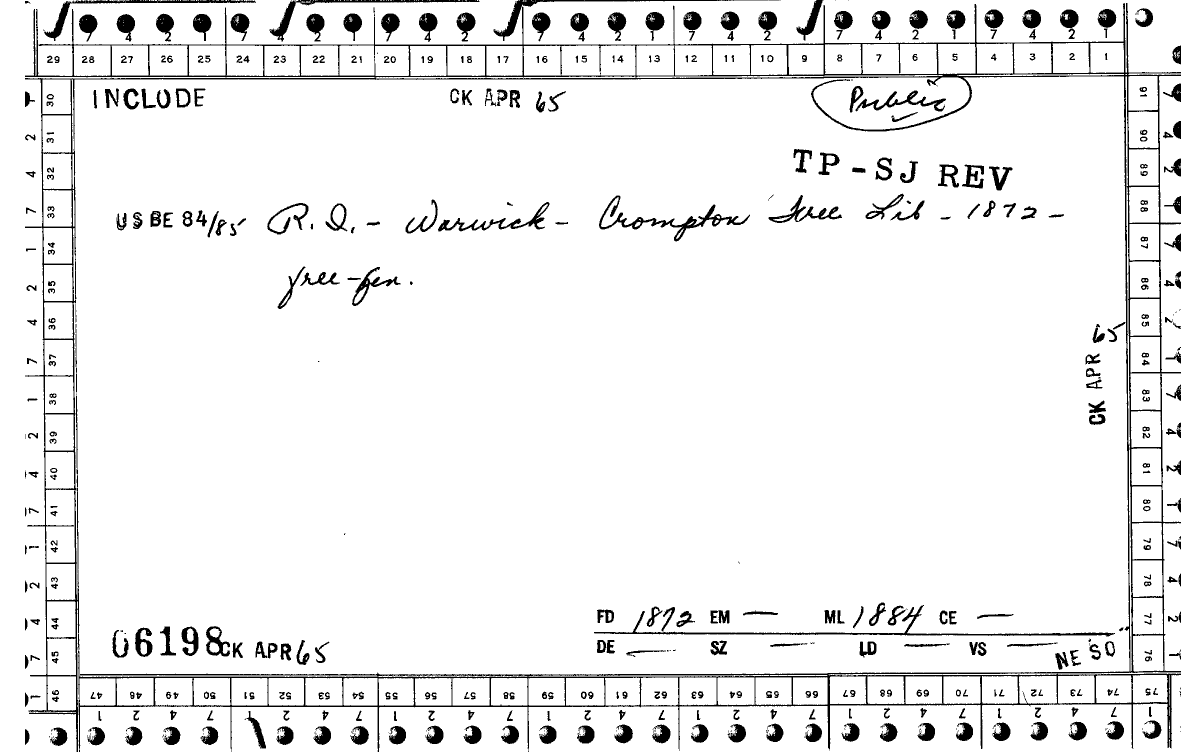 7 4 2 1 7 4 2 1 7 4 2 1 7 4 2 1 7 4 2 1 7 4 2 1 7 4 2 1
29 28 27 26 25 24 23 22 21 20 19 18 17 16 15 14 13 12 11 10 9 8 7 6 5 4 3 2 1
INCLUDE CK APR 65 Public
TP-SJ REV
US BE 84/85 R.I. - Warwick - Crompton Free Lib - 1872 -
free-gen.
CK APR 65
FD 1872 EM — ML 1884 CE —
06198 CK APR 65
DE — SZ — LD — VS — NE SO
30 31 32 33 34 35 36 37 38 39 40 41 42 43 44 45 46
91 90 89 88 87 86 85 84 83 82 81 80 79 78 77 76
47 48 49 50 51 52 53 54 55 56 57 58 59 60 61 62 63 64 65 66 67 68 69 70 71 72 73 74 75
1 2 4 7 2 4 7 1 2 4 7 1 2 4 7 1 2 4 7 1 2 4 7 1 2 4 7 1